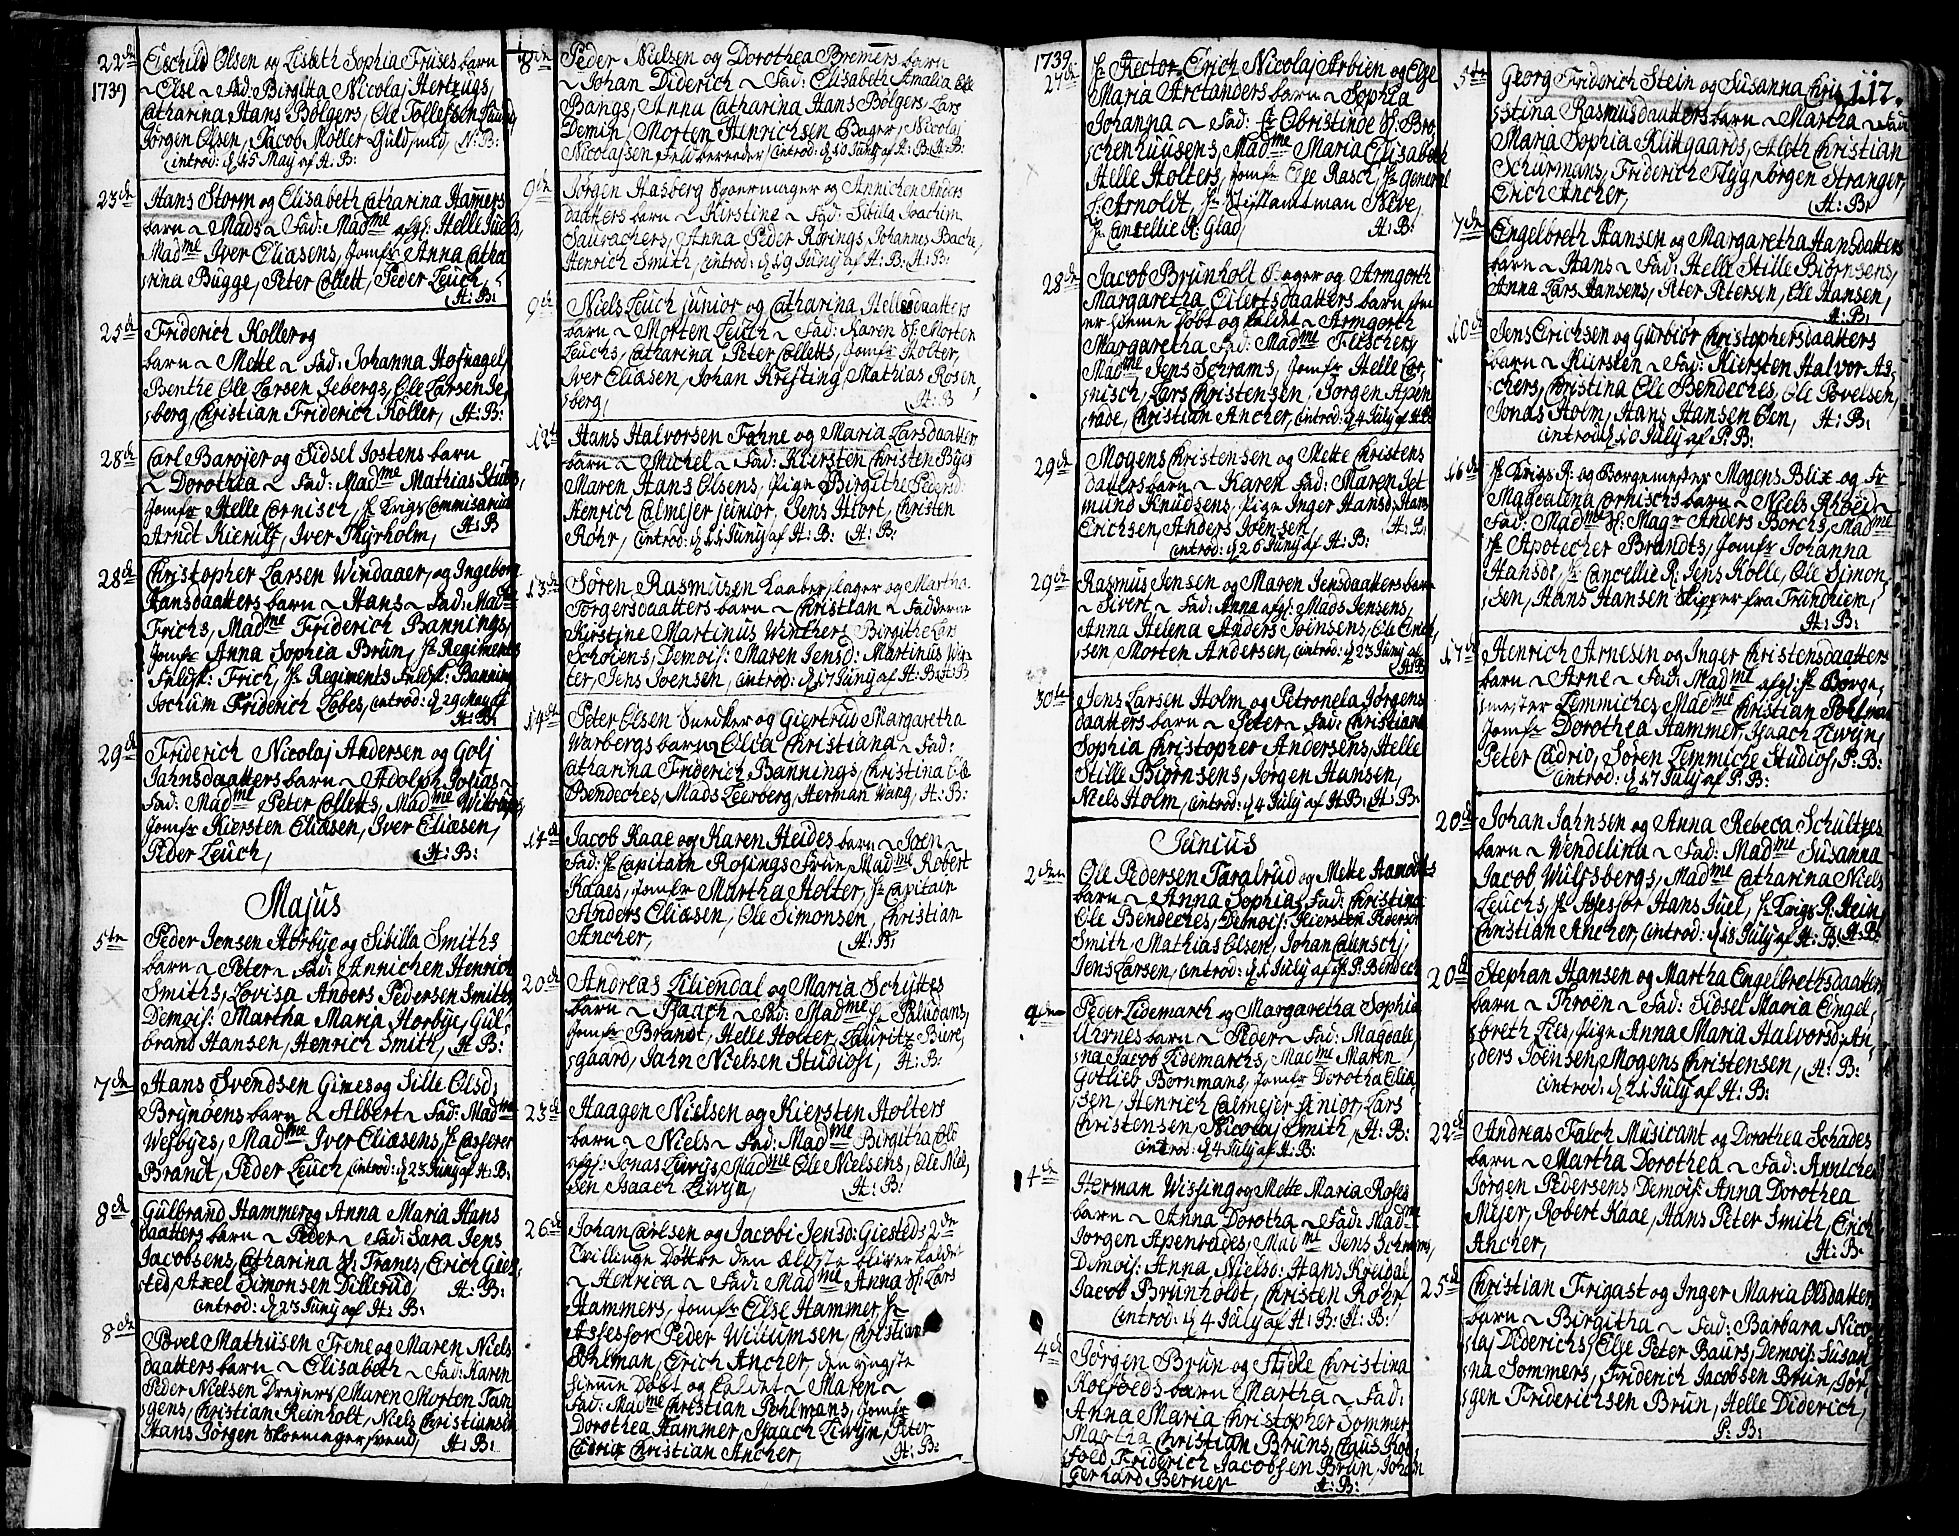 22de
1739
Elschild Olsen og Lisbeth Sophia Frises barn
~ Else ~ Fad: Birgitta Nicolaj Hertzugs,
Catharina Hans Bølgers, Ole Tollefsen
Jørgen Olsen, Jacob Møller Guldsmed, N: B:
introd: d 15 May af H: B:
23de
Hans Storm og Elisabeth Catharina Hamers
barn ~ Mads ~ Fad: Madme afg: Helle Juels,
Madme Iver Eliæsens, Jomfr Anna Catha
rina Bugge, Peter Collett, Peder Leuch,
H: B:
25de
Friderich Koller og
barn ~ Mette ~ Fad: Johanna Hofnagel,
Benthe Ole Larsen Seebergs, Ole Larsen Se
sberg, Christian Friderich Koller, H: B:
28de
Carl Barojer og Sidsel Jostens barn
~ Dorothea ~ Fad: Madme Mathias
Jomfr Helle Cornisch, Hr Krigs Commisarius
Arndt Kierulf, Iver Thyrholm, H: B
28de
Christopher Larsen Windaaer, og Ingeborg
Hansdaatters barn ~ Hans ~ Fad: Madme
Frichs, Madme Friderich Bannings,
Jomfr Anna Sophia Brun, Hr Regiments
Feldsk: Frich, Hr Regiments Feldsk: Banning
Jochum Friderich Lobes, introd: d 29 May af
H: B:
29de
Friderich Nicolaj Andersen og Golj
Jahnsdaatters barn ~ Adolph Josias ~
Fad: Madme Peter Colletts, Madme
Jomfr Kiersten Eliæsen, Iver Eliæsen,
Peder Leuch, H: B:
Majus
5te
Peder Jensen Horbye og Sibilla Smiths
barn ~ Peter ~ Fad: Annichen Henrich
Smiths, Lovisa Anders Pedersen Smiths
Demois: Martha Maria Horbye, Gul,
brand Hansen, Henrich Smith, H: B:
7de
Hans Svendsen Gimes og Sille Olsd:
Brynøens barn ~ Albert ~ Fad: Madme
Wesbyes, Madme Iver Eliæsens, Hr Casserer
Brandt, Peder Leuch, introd: d 23 Juny af H: B:
8de
Gulbrand Hammer og Anna Maria Hans
daatters barn ~ Peder ~ Fad: Sara Jens
Jacobsens, Catharina Sl: Franes, Erich Gies
sted, Axel Simonsen Dillerud, H: B:
introd: d 23 Juny af H: B:
8de
Povel Mathiisen Frene og Maren Niels
daatters barn ~ Elisabeth ~ Fad: Karen
Peder Nielsen Drejers, Maren Morten Tan
gens, Christian Reinholt, Niels Christiansen
Hans Jørgen Skoemagersvend, H: B:
8de
Peder Nielsen og Dorothea Bremers barn
~ Johan Diderich ~ Fad: Elisabeth Amalia Ole
Bangs, Anna Catharina Hans Bølgers, Lars
Demin, Morten Henrichsen Bager, Nicolaj
Nicolajsen Feldbereeder, introd: d 10 Juny af H: B: H: B:
9de
Jørgen Hasberg Skoemager og Annichen Anders
daatters barn ~ Kirstine ~ Fad: Sibilla Joachim
Saurachers, Anna Peder Rørings, Johannes Bache,
Henrich Smith, introd: d 19 Juny af H: B: H: B:
9de
Niels Leuch junior og Catharina Hellesdaatters
barn ~ Morten Leuch ~ Fad: Karen Sl: Morten
Leuchs, Catharina Peter Colletts, Jomfr Holter,
Iver Eliæsen, Johan Krefting, Mathias Rosen
sberg, H: B
12te
Hans Halvorsen Fahne og Maria Larsdaatter
barn ~ Michel ~ Fad: Kiersten Christen Byes
Maren Hans Olsens, Pige Birgithe Pedersd:
Henrich Calmejer junior, Jens Hiort, Christen
Rohr, introd: d 11 Juny af H: B: H: B:
13de
Søren Rasmusen Kaaberslager og Martha
Torgersdaatters barn ~ Christian ~ Fadderne
Kirstine Martinus Winthers Birgithe Lars
Schoiens, Demois: Maren Jensd: Martinus Win
ter, Jens Joensen, introd: d 17 Juny af H: B: H: B
14de
Peter Olsen Snedker og Giertrud Margaretha
Warbergs barn ~ Olia Christiana ~ Fad:
Catharina Friderich Bannings, Christina Ole
Bendeches, Mads Leerberg, Herman Wang, H: B:
14de
Jacob Kaae og Karen Heides barn ~ Joen ~
Fad: Hr Capitain Rosings Frue, Madme Robert
Kaaes, Jomfr Martha Holter, Hr Capitain
Anders Eliæsen, Ole Simonsen, Christian
Ancher, H: B:
20de
Andreas Liliendal og Maria Schyttes
barn ~ Isaach ~ Fad: Madme Hr Paludans,
Jomfr Brandt, Helle Holter, Lauritz Biere,
sgaard, Jahn Nielsen Studiosi, H: B:
23de
Haagen Nielsen og Kiersten Holters
barn ~ Niels ~ Fad: Madme Birgitha Old
afg: Jonas Liwyjs Madme Ole Nielsens, Ole Niel,
sen Isaach Liwyn, H: B:
26de
Johan Carlsen og Jacobi Jensd: Giesteds 2de
Tvillinge Døttre den ældste bliver kaldet
~ Henrica ~ Fad: Madme Anna Sl: Lars
Hammers, Jomfr Else Hammer, Hr
Assessor Peder Willumsen, Christian
Pohlman, Erich Ancher, den yngste
hiemme Døbt og kaldet ~ Maren ~
Fad: Madme Christian Pohlmans, Jomfr
Dorothea Hammer, Isaach Liwyn, Peter
Cadrio Christian Ancher, H: B:
1739.
27de
Hr Rector Erich Nicolaj Arbien og Else
Maria Arctanders barn ~ Sophia
Johanna ~ Fad: Fr Obristinde Sl: Bro,
schenhuusens, Madme Maria Elisabeth
Helle Holters, Jomfr Else Rasch, Hr General
L. Arnoldt, Hr Stiftamtsman Neve,
Hr Cancellie R: Glad, H: B:
28de
Jacob Brunholt Bager og Armgorth
Margaretha Eilertsdaatters barn som
er hieme Døbt og kaldet ~ Armgorth
Margaretha Fad: Madme Flescher,
Madme Jens Schrams, Jomfr Helle Cor,
nisch, Lars Christensen, Jørgen Apen
rade, Christian Ancher, introd: d 4 July af H: B:
29de
Mogens Christensen og Mette Christens
daatters barn ~ Karen Fad: Maren Jet
mund Knudsens, Pige Inger Hansd: Hans
Erichsen, Anders Joensen, H: B:
introd: d 26 Juny af H: B:
29de
Rasmus Jensen og Maren Jensdaatters barn
~ Sivert ~ Fad: Anna afg: Mads Jensens,
Anna Helena Anders Joensens, Ole Erich,
sen, Morten Andersen, introd: d 23 Juny af
H: B:
30te
Jens Larsen Holm og Petronela Jørgens
daatters barn ~ Peter ~ Fad: Christiane
Sophia Christopher Andersens, Helle
Stille Biørnsens, Jørgen Hansen,
Niels Holm, introd: d 4 July af H: B: H: B:
Junius
2den
Ole Pedersen Taralrud og Mette Aamodts
barn ~ Anna Sophia, Fad: Christina
Ole Bendeches, Demois: Kiersten Roersen
Smith, Mathias Olsen, Johan
Jens Larsen, introd: d 1 July af Hr P: Bendech
4den
Peder Lidemarch og Margaretha Sophia
Uernes barn ~ Peder ~ Fad: Magdale,
sna Jacob Lidemarchs, Madme Maren
Gotlieb Bornmans, Jomfr Dorotha Elia
sen, Henrich Calmejer junior, Lars
Christensen, Nicolaj Smith, H: B:
introd: d 4 July af H: B:
4de
Herman Wissing og Mette Maria Roses
barn ~ Anna Dorotha ~ Fad: Madme
Jorgen Apenrades, Madme Jens Schrams,
Demois: Anna Nielsd: Hans Kreidal
Jacob Brunholdt, Christen Rohr,
introd: d 4 July af H: B: H: B:
4de
Jørgen Brun og Sidle Christina
Roefoeds barn Martha ~ Fad:
Anna Maria Christopher Sommer
Martha Christian Bruns, Claus Roe
sfoed, Friderich Jacobsen Brun, Johan
Gerhard Berner H: B:
117.
5te
Georg Friderich Stein og Susanna Chri
sstina Rasmusdaatters barn ~ Martha ~ Fad
Maria Sophia Klitgaards, Aleth Christian
Schurmans, Friderich Flyg, Jørgen Stranger,
Erich Ancher, H: B:
7de
Engelbreth Hansen og Margaretha Hansdatters
barn ~ Hans ~ Fad: Helle Stille Biørnsens,
Anna Lars Hansens, Peter Petersen, Ole Hansen,
H: B:
10de
Jens Erichsen og Gurbiør Christophersdaatters
barn ~ Kiersten ~ Fad: Kiersten Halvor As,
schers, Christina Ole Bendeches, Ole Povelsen,
Jonas Holm, Hans Hansen Oen, H: B:
introd: d 10 July af P: B:
16de
Hr Krigs R: og Borgemester Mogens Blix og Fr
Magdalena Cornischs barn ~ Niels Arbøid ~
Fad: Madme Sl: Magr Anders Borchs, Madme
Hr Apotecher Brandts, Jomfr Johanna
Hansdr, Hr Cancellie R: Jens Kolle, Ole Simon,
sen, Hans Hansen Skipper fra Trinchiem,
H: B:
17de
Henrich Arnesen og Inger Christensdaatters
barn ~ Arne ~ Fad: Madme afg: Hr Borge,
smester Lemmiches Madme Christian Pohlman
Jomfr Dorothea Hammer, Isaach Liwyn,
Peter Cadrio, Søren Lemmiche Studios, P: B:
introd: d 17 July af P: B:
20de
Johan Jahnsen og Anna Rebeca Schultzes
barn ~ Wendelina ~ Fad: Madme Susanna
Jacob Wilssbergs, Madme Catharina Niels
Leuchs, Hr Assessor Hans Juel, Hr Krigs R: Hein,
Christian Ancher, introd: d 18 July af H: B H: B:
20de
Stephan Hansen og Martha Engelbrethsdaatters
barn ~ Throen ~ Fad: Sidsel Maria Engel,
sbreth Lies, Pige Anna Maria Halvorsd: An,
sders Joensen, Mogens Christensen, H: B:
introd: d 21 July af H: B:
22de
Andreas Falch Musicant og Dorothea Schades
barn ~ Martha Dorothea ~ Fad: Annichen
Jørgen Pedersens Demois: Anna Dorothea
Mejer, Robert Kaae, Hans Peter Smith, Erich
Ancher, H: B
25de
Christian Frigast og Inger Maria Olsdatters
barn ~ Birgitha ~ Fad: Barbara Nico
laj Diderichs, Else Peter Baurs, Demois: Susan
sna Sommers, Friderich Jacobsen Brun, Jør
sgen Friderichsen Brun, Helle Diderich,
P: B: